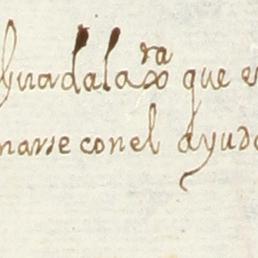 Guadalaxra que e
narse con el ayud